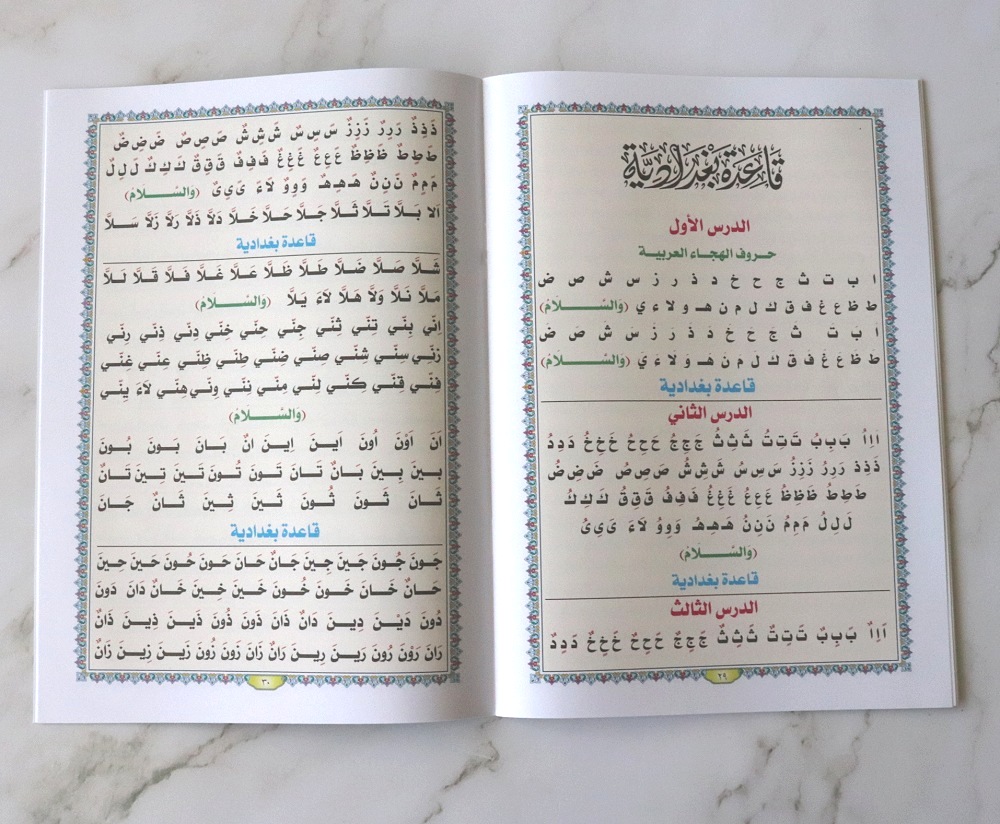 قَاعِدَة بَغْدَادِيَّة
الدرس الأول
حروف الهجاء العربية
ا ب ت ث ج ح خ د ذ ر ز س ش ص ض
ط ظ ع غ ف ق ك ل م ن هـ و لا ء ي (وَالسَّلَامُ)
ا ب ت ث ج ح خ د ذ ر ز س ش ص ض
ط ظ ع غ ف ق ك ل م ن هـ و لا ء ي (وَالسَّلَامُ)
قاعدة بغدادية
الدرس الثاني
اَاِاُ بَ بِ بُ تَ تِ تُ ثَ ثِ ثُ جَ جِ جُ حَ حِ حُ خَ خِ خُ دَ دِ دُ
ذَ ذِ ذُ رَ رِ رُ زَ زِ زُ سَ سِ سُ شَ شِ شُ صَ صِ صُ ضَ ضِ ضُ
طَ طِ طُ ظَ ظِ ظُ عَ عِ عُ غَ غِ غُ فَ فِ فُ قَ قِ قُ كَ كِ كُ
لَ لِ لُ مَ مِ مُ نَ نِ نُ هَ هِ هُ وَ وِ وُ لَاءَ يَ يِ يُ
(وَالسَّلَامُ)
قاعدة بغدادية
الدرس الثالث
اَاِاٌ بَ بِ بٌ تَ تِ تٌ ثَ ثِ ثٌ جَ جِ جٌ حَ حِ حٌ خَ خِ خٌ دَ دِ دٌ
٢٩
ذَ ذِ ذٌ رَ رِ رٌ زَ زِ زٌ سَ سِ سٌ شَ شِ شٌ صَ صِ صٌ ضَ ضِ ضٌ
طَ طِ طٌ ظَ ظِ ظٌ عَ عِ عٌ غَ غِ غٌ فَ فِ فٌ قَ قِ قٌ كَ كِ كٌ لَ لِ لٌ
مَ مِ مٌ نَ نِ نٌ هَ هِ هٌ وَ وِ وٌ لَاءَ يَ يِ يٌ (وَالسَّلَامُ)
اَلا بَلَّا تَلَّا ثَلَّا جَلَّا حَلَّا خَلَّا دَلَّا ذَلَّا رَلَّا زَلَّا سَلَّا
قاعدة بغدادية
شَلَّا صَلَّا ضَلَّا طَلَّا ظَلَّا عَلَّا غَلَّا فَلَّا قَلَّا لَلَّا
مَلَّا نَلَّا وَلَّا هَلَّا لَاءَ يَلَّا (وَالسَّلَامُ)
اِنِّي بِنَّي تِنَّي ثِنَّي جِنِّي حِنَّي خِنَّي دِنَّي ذِنَّي رِنَّي
زِنَّي سِنَّي شِنَّي صِنَّي ضِنَّي طِنَّي ظِنَّي عِنَّي غِنَّي
فِنَّي قِنَّي كِنَّي لِنَّي مِنَّي نِنَّي وِنَّي هِنَّي لَاءَ يِنَّي
(وَالسَّلَامُ)
اَنَ اَوْنَ اُونَ اَيـنَ اِينَ انٌ بَانَ بَـونَ بُـونَ
بَـيـنَ بِـيـنَ بَـانٌ تَـانَ تَـونَ تُـونَ تَـيـنَ تِـيـنَ تَـانٌ
ثَـانَ ثَـونَ ثُـونَ ثَـيـنَ ثِـيـنَ ثَـانٌ جَـانَ
قاعدة بغدادية
جَـونَ جُـونَ جَـيـنَ جِـيـنَ جَـانٌ حَـانَ حَـونَ حُـونَ حَـيـنَ حِـيـنَ
حَـانٌ خَـانَ خَـونَ خُـونَ خَـيـنَ خِـيـنَ خَـانٌ دَانَ دَونَ
دُونَ دَيْـنَ دِيـنَ دَانٌ ذَانَ ذَونَ ذُونَ ذَيـنَ ذِيـنَ ذَانٌ
رَانَ رَوْنَ رُونَ رَيـنَ رِيـنَ رَانٌ زَانَ زَونَ زُونَ زَيـنَ زِيـنَ زَانٌ
٣٠